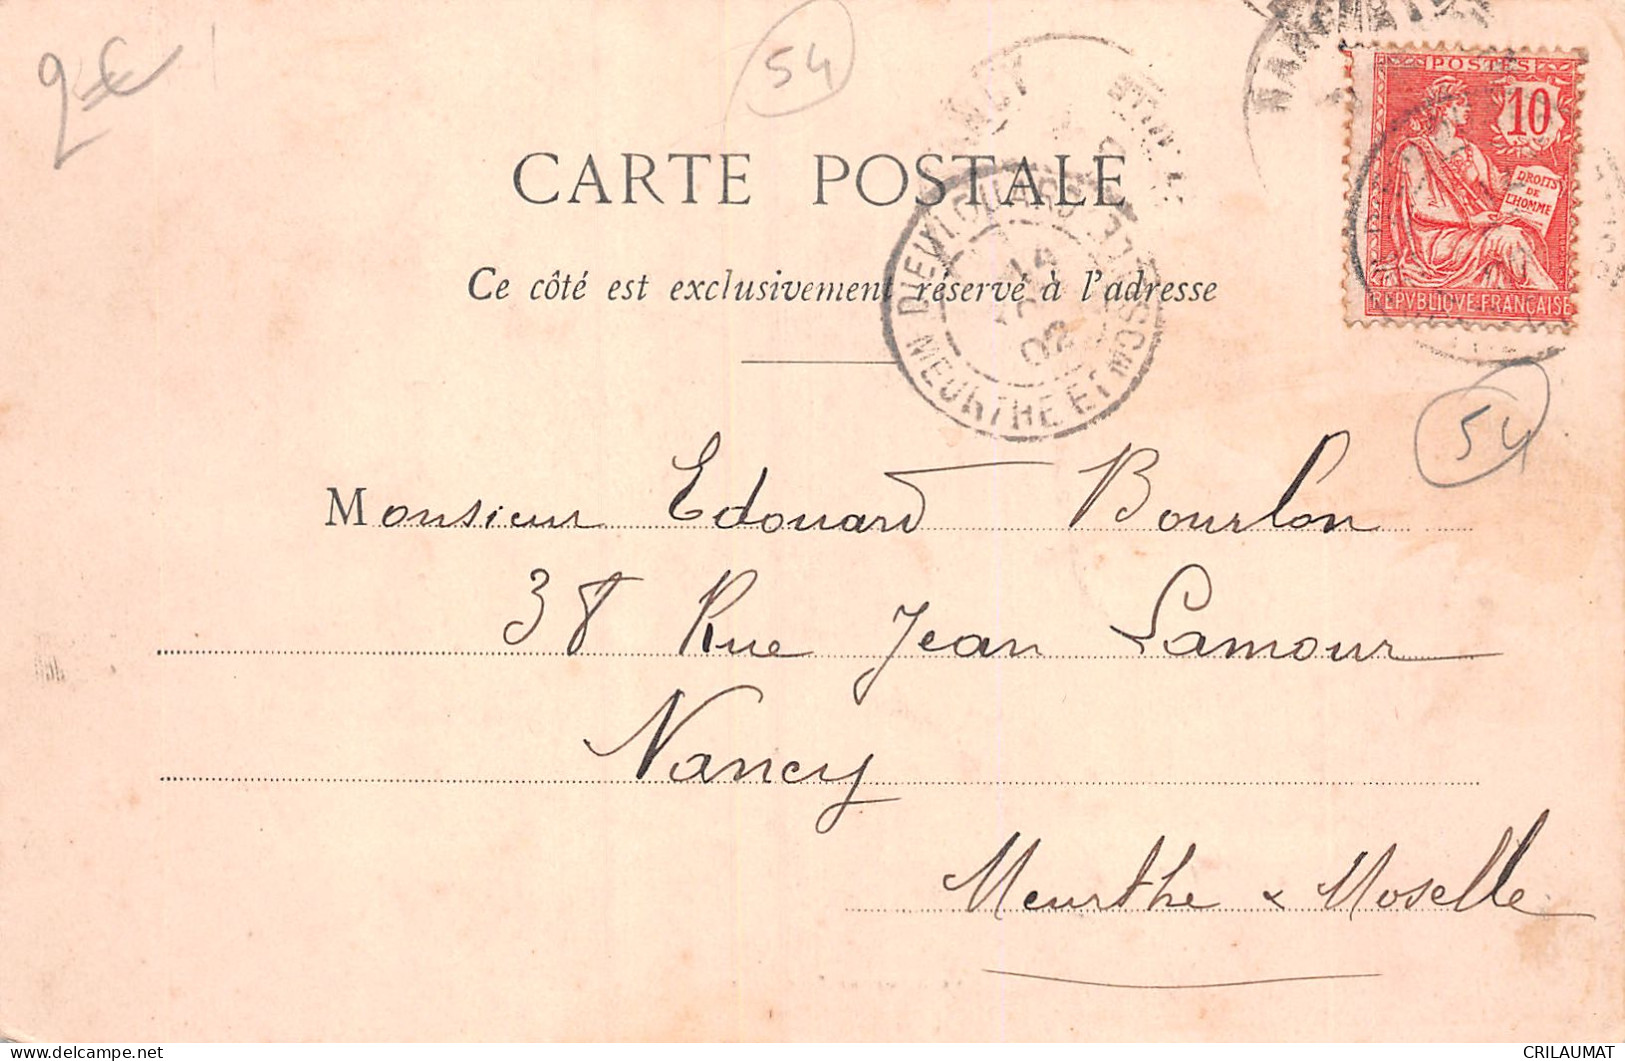 2€
54
POSTES
10
DROITS
DE
L'HOMME
REPVBLIQVE FRANÇAISE
CARTE POSTALE
Ce côté est exclusivement réservé à l'adresse
14
02
MEURTHE ET MOSELLE
54
Monsieur Edouard Bourlon
38 Rue Jean Lamour
Nancy
Meurthe & Moselle
CRILAUMAT